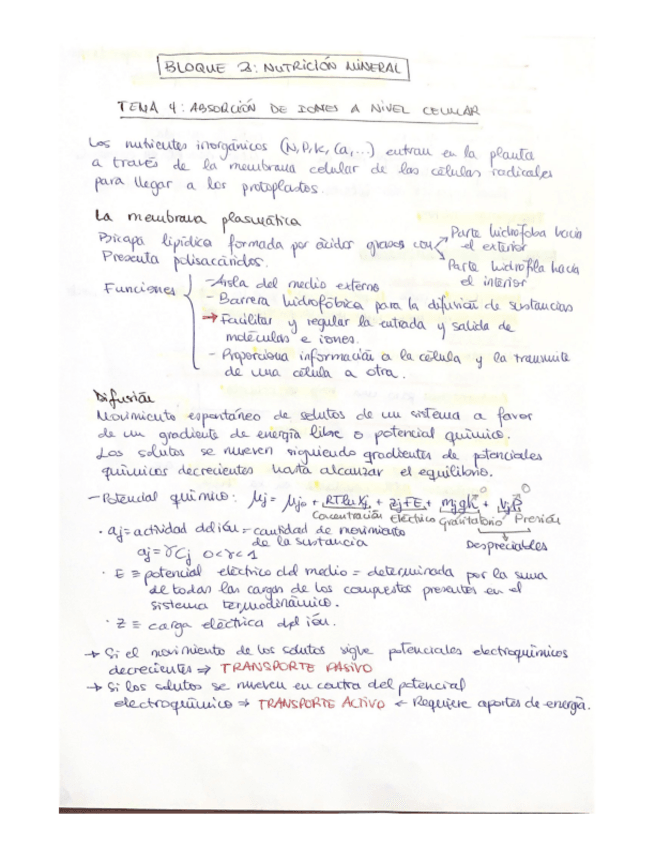 BLOQUE 2: NUTRICIÓN MINERAL
TEMA 4: ABSORCIÓN DE IONES A NIVEL CELULAR
Los nutrientes inorgánicos (N, P, K, Ca, ...) entran en la planta
a través de la membrana celular de las células radicales
para llegar a los protoplastos.
La membrana plasmática
Bicapa lipídica formada por ácidos grasos con
Parte hidrófoba hacia
el exterior
Parte hidrófila hacia
el interior
Presenta polisacáridos.
Funciones
- Aisla del medio externo
- Barrera hidrofóbica para la difusión de sustancias
→ Facilitar y regular la entrada y salida de
moléculas e iones.
- Proporciona información a la célula y la transmite
de una célula a otra.
Difusión
Movimiento espontáneo de solutos de un sistema a favor
de un gradiente de energía libre o potencial químico.
Los solutos se mueven siguiendo gradientes de potenciales
químicos decrecientes hasta alcanzar el equilibrio.
- Potencial químico: μj = μj0 + RTln aj + zjFE + mjgh + VjP
Concentración Eléctrico Gravitatorio Presión
Despreciables
· aj = actividad del ión = cantidad de movimiento
de la sustancia
aj = γCj 0<γ<1
· E ≡ potencial eléctrico del medio = determinada por la suma
de todas las cargas de los compuestos presentes en el
sistema termodinámico.
· Z ≡ carga eléctrica del ión.
→ Si el movimiento de los solutos sigue potenciales electroquímicos
decrecientes ⇒ TRANSPORTE PASIVO
→ Si los solutos se mueven en contra del potencial
electroquímico ⇒ TRANSPORTE ACTIVO ← Requiere aportes de energía.